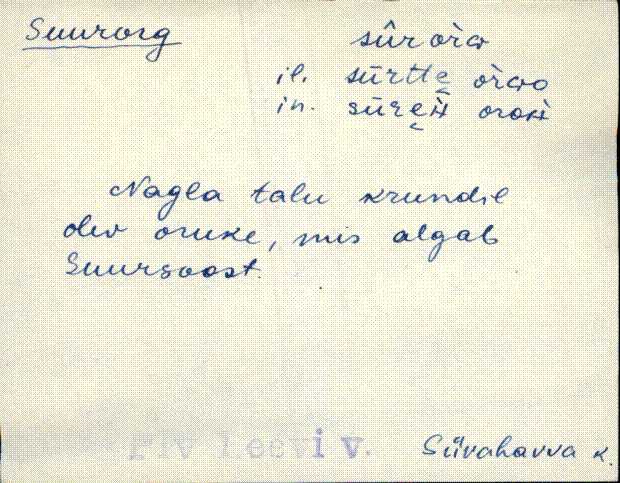 Suurorg
sûr òrɢ
il. sūrtte̬ òrɢo
in. sūre̬H oroH
Nagla talu krundil
olev oruke, mis algab
Suursoost.
Süvahavva k.